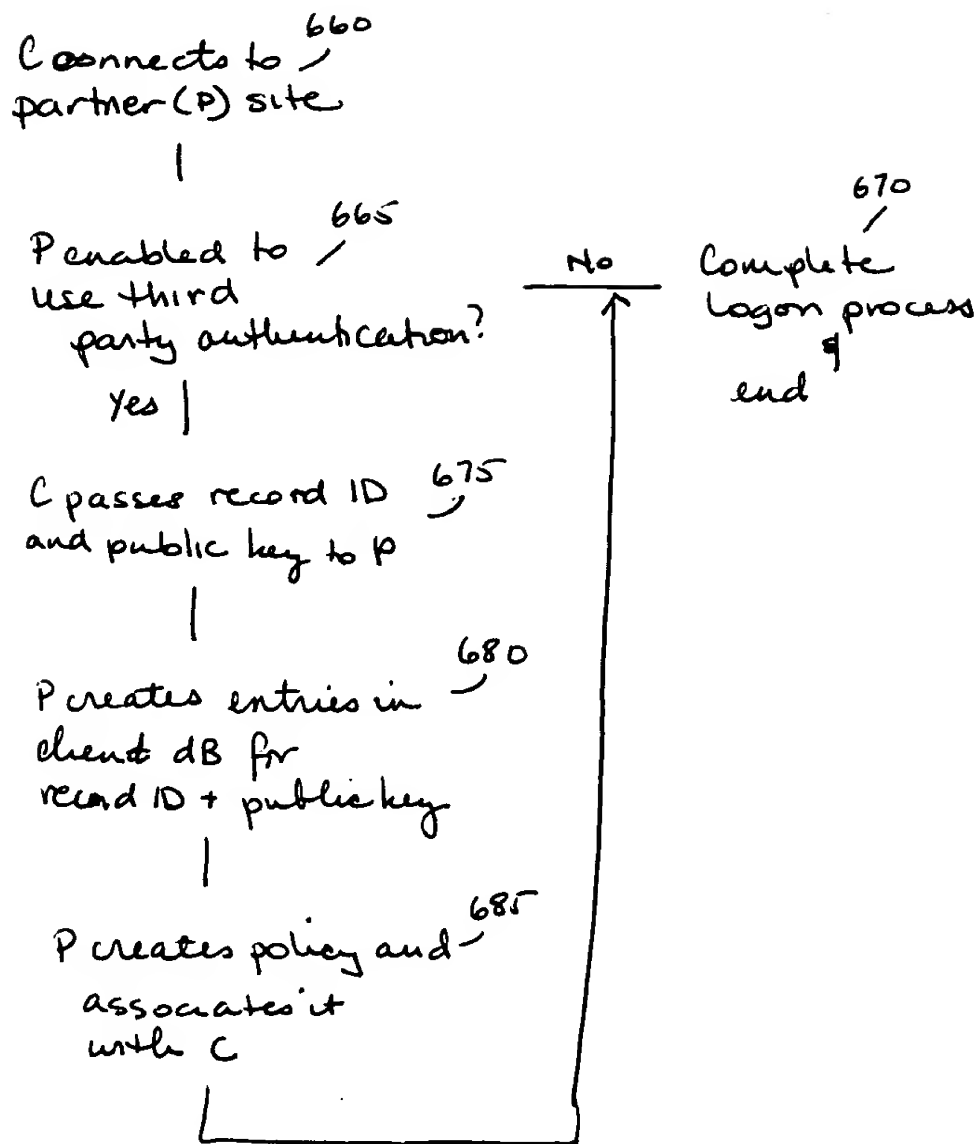 660
C connects to
partner (P) site
665
P enabled to
use third
party authentication?
No
670
Complete
logon process
&
end
Yes
C passes record ID 675
and public key to P
680
P creates entries in
client dB for
record ID + public key
685
P creates policy and
associates it
with C